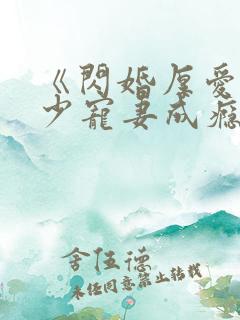 《閃婚厚愛
少寵妻成癮
舍伍德
未经同意禁止转载